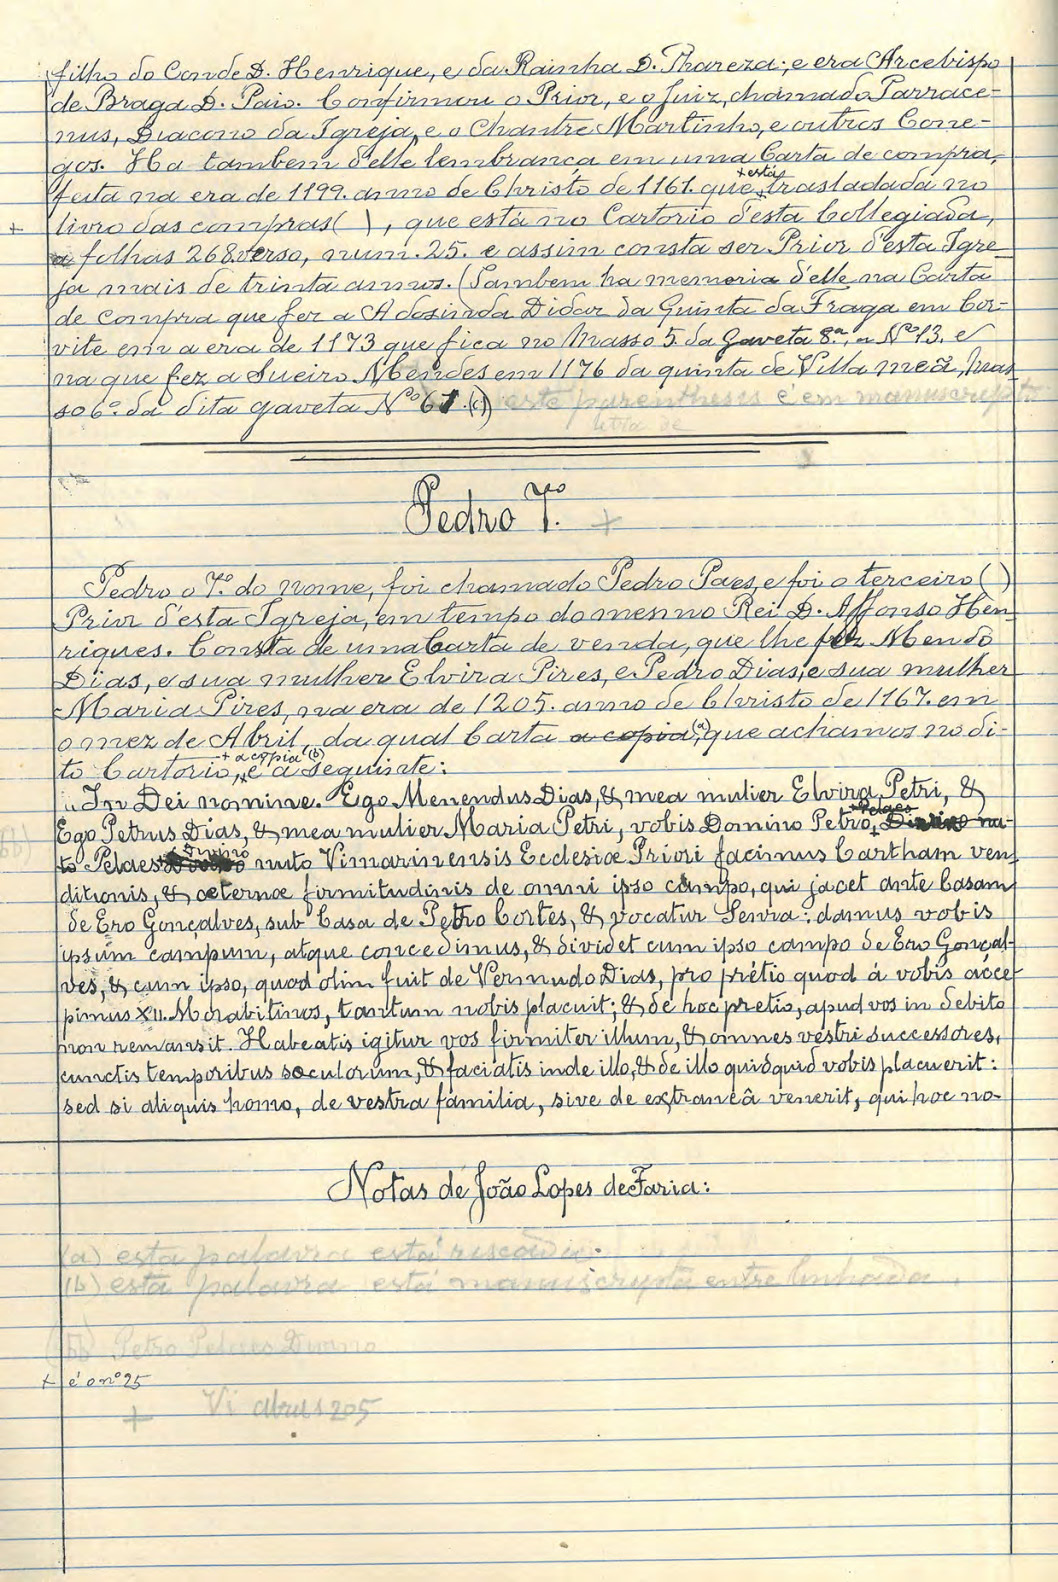 filho do Conde D. Henrique, e da Rainha D. Thareza; e era Arcebispo
de Braga D. Paio. Confirmou o Prior, e o Juiz, chamado Tarrace-
nus, Diacono da Igreja, e o Chantre Martinho, e outros Cone-
gos. Ha tambem d'elle lembrança em uma Carta de compra,
+está
feita na era de 1199. anno de Christo de 1161. que + trasladada no
+ livro das compras( ), que está no Cartorio d'esta Collegiada,
a folhas 268 verso, num. 25. e assim consta ser Prior d'esta Igre
ja mais de trinta annos. (Tambem ha memoria d'elle na Carta
de compra que fez a Adosinda Didaz da Quinta da Fraga em Cor-
vite em a era de 1173 que fica no Masso 5 da Gaveta 8ª, a Nº 13. e
na que fez a Sueiro Mendes em 1176 da quinta de Villa meã, Mas
so 6º da dita gaveta Nº 61.(c)) este parenthesis é em manuscripto
letra de
Pedro 7º. +
Pedro o 7º do nome, foi chamado Pedro Paes, e foi o terceiro ( )
Prior d'esta Igreja, em tempo do mesmo Rei D. Affonso Hen
riques. Consta de uma Carta de venda, que lhe fez Mendo
Dias, e sua mulher Elvira Pires, e Pedro Dias, e sua mulher
Maria Pires, na era de 1205. anno de Christo de 1167. em
o mez de Abril, da qual Carta a copia,(a) que achamos no di-
+ a copia (b)
to Cartorio, + é a seguinte:
"In Dei nomine. Ego Menendus Dias, & mea mulier Elvira Petri, &
+Pelaes
Ego Petrus Dias, & mea mulier Maria Petri, vobis Domino Petro, + Divino nu-
Divino
to Pelaes nuto Vimarinensis Ecclesiæ Priori facimus Cartham ven
ditionis, & æternæ firmitudinis de omni ipso campo, qui jacet ante Casam
de Ero Gonçalves, sub Casa de Petro Cortes, & vocatur Senra: damus vobis
ipsum campum, atque concedimus, & dividet cum ipso campo de Ero Gonçal-
ves, & cum ipso, quod olim fuit de Vermudo Dias, pro prétio quod á vobis acce
pimus XII. Morabitinos, tantum nobis placuit; & de hoc pretio, apud vos in debito
non remansit. Habeatis igitur vos firmiter illum, & omnes vestri successores,
cunctis temporibus sæculorum, & faciatis inde illo, & de illo quidquid vobis placuerit:
sed si aliquis homo, de vestra família, sive de extraneâ venerit, qui hoc no-
Notas de João Lopes de Faria:
(a) esta palavra está riscada.
(b) esta palavra está manuscripta entre linhada.
(bb) Petro Pelaes Divino
+ é o nº 25
+ Vi